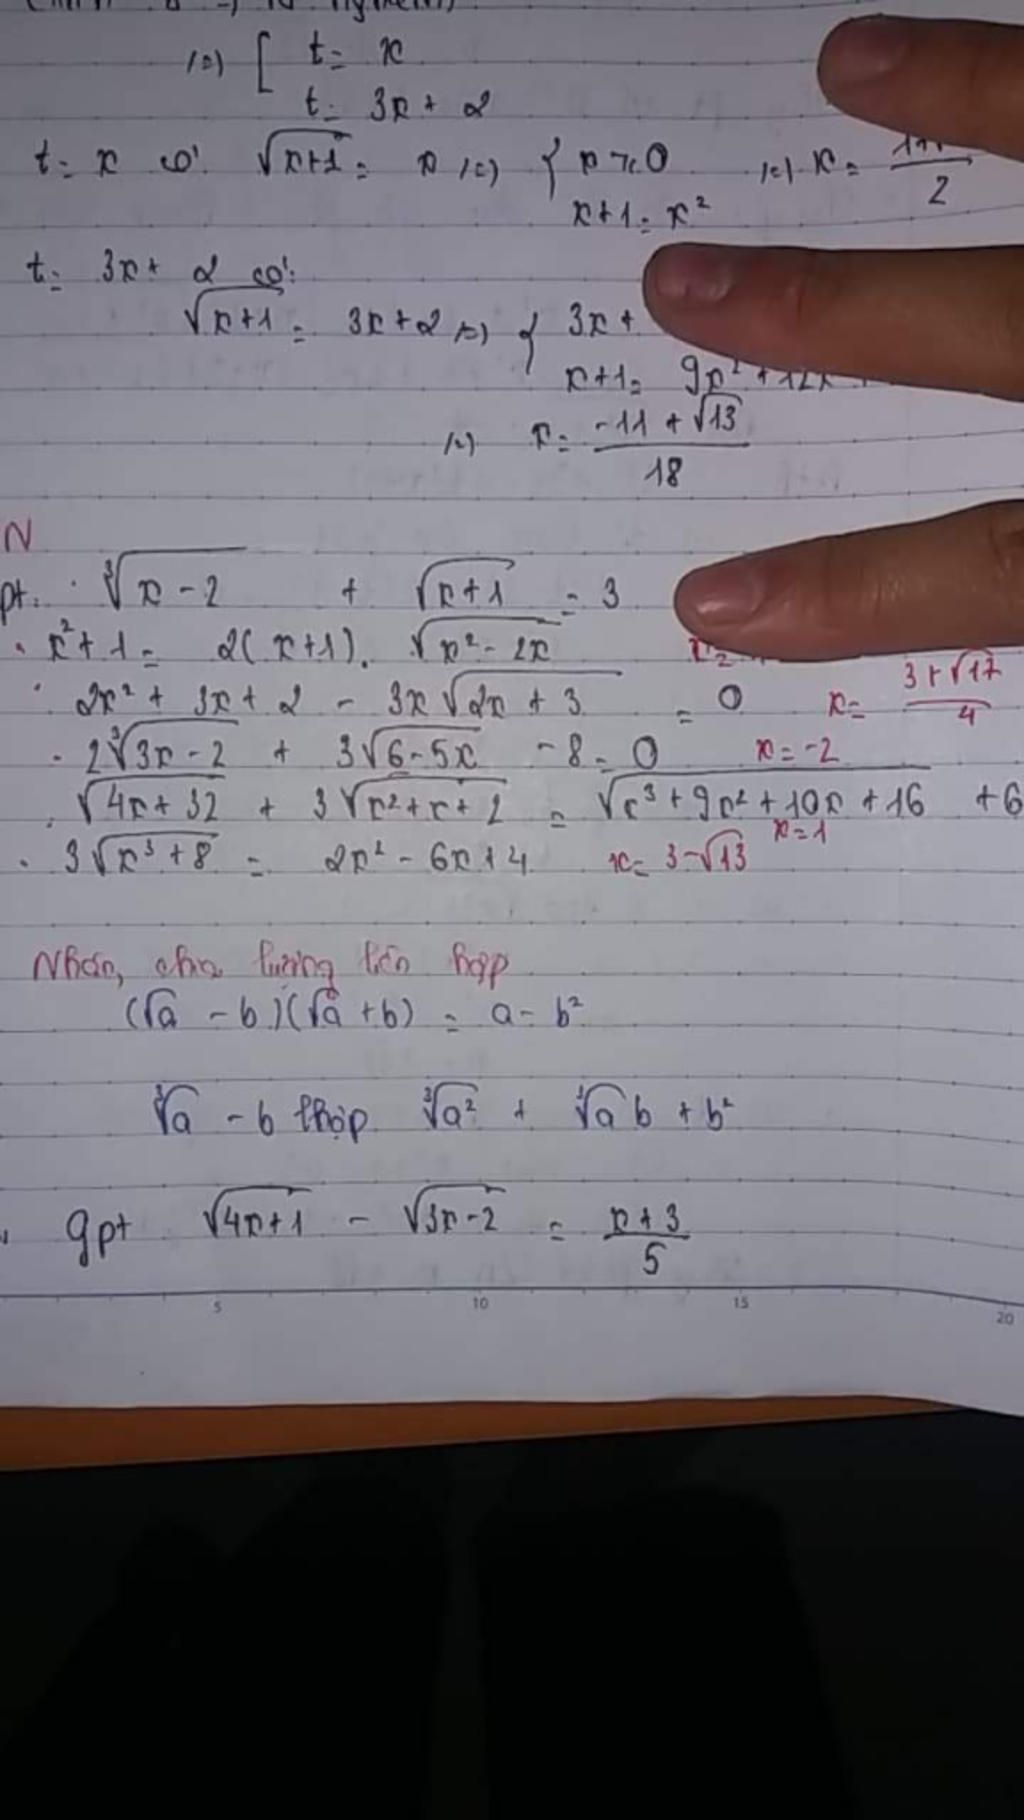 /=) [ t = x
t = 3x + 2
t = x có: √(x+1) = x /=) { x ≥ 0 /=) x = 2
x+1 = x²
t = 3x + 2 có:
√(x+1) = 3x+2 /=) { 3x +
x+1 = 9x² + 12x
/=) x = (-11 + √13)/18
N
pt: · ∛(x-2) + √(x+1) = 3
· x²+1 = 2(x+1). √(x²-2x)
· 2x² + 3x + 2 - 3x√(2x+3) = 0 x = (3+√17)/4
· 2∛(3x-2) + 3√(6-5x) - 8 = 0 x = -2
· √(4x+32) + 3√(x²+x+2) = √(x³+9x²+10x+16) + 6
x = 1
· 3√(x³+8) = 2x² - 6x + 4 x = 3-√13
Nhân, chia lượng liên hợp
(√a - b)(√a + b) = a - b²
∛a - b lhợp ∛a² + ∛a b + b²
gpt √(4x+1) - √(3x-2) = (x+3)/5
5 10 15 20